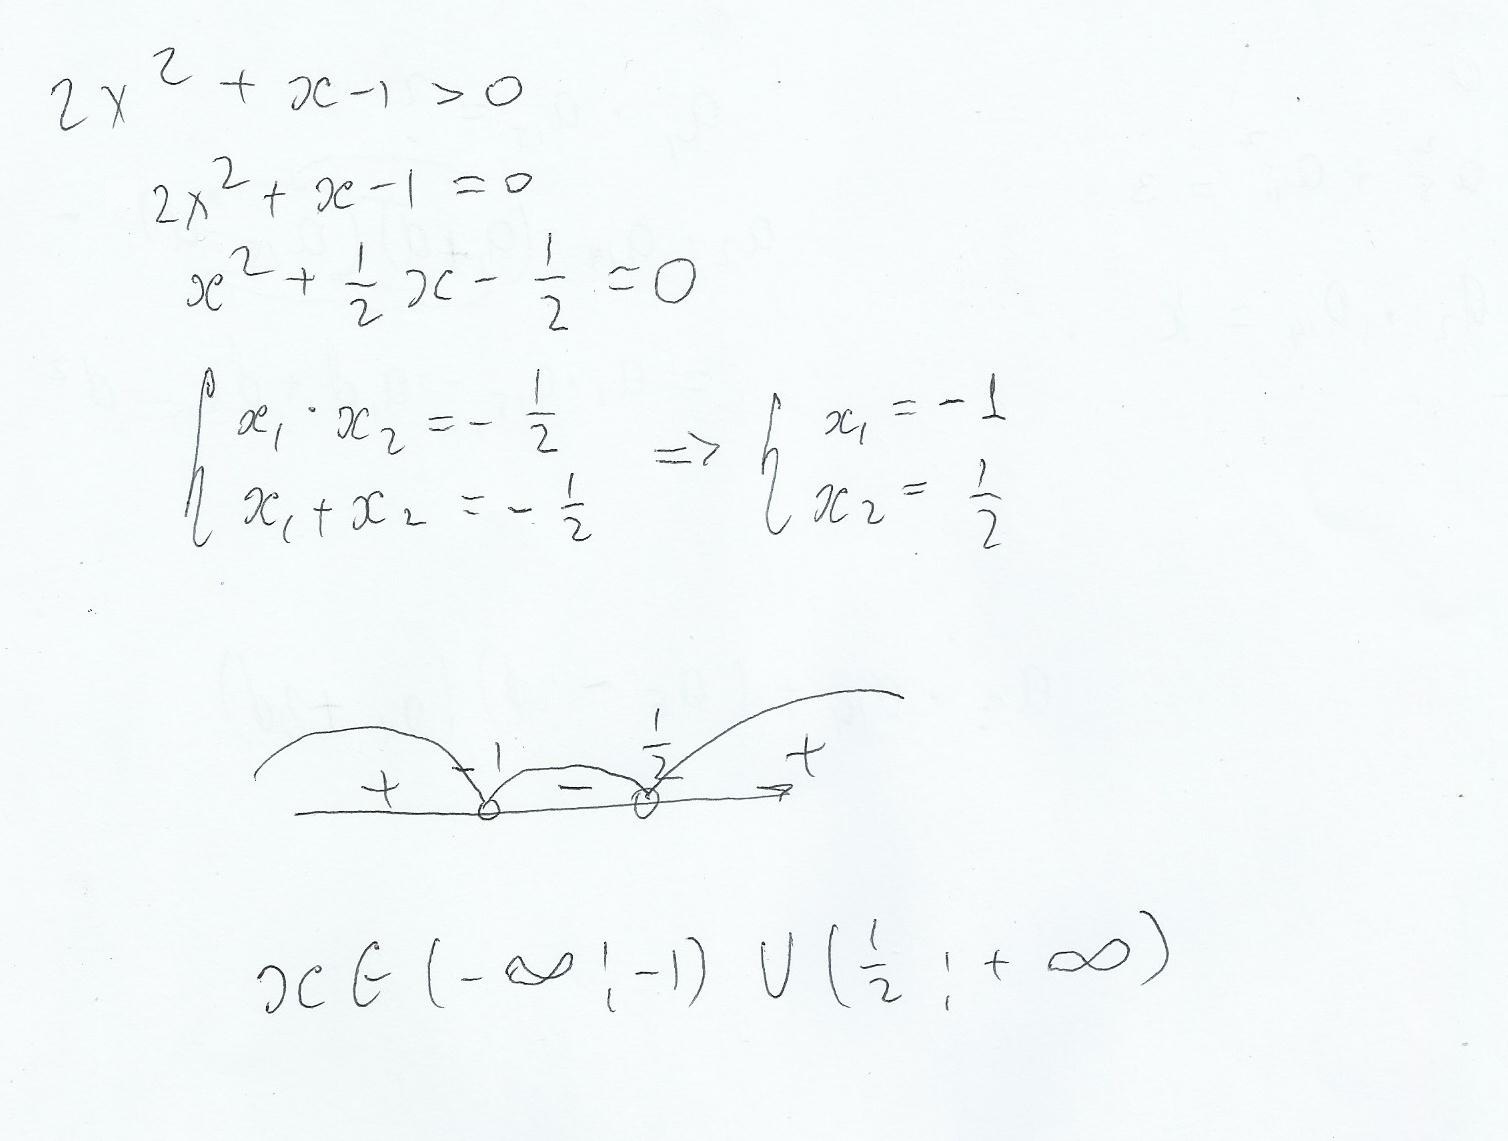 2x² + x - 1 > 0
2x² + x - 1 = 0
x² + 1/2 x - 1/2 = 0
{ x₁ · x₂ = - 1/2 => { x₁ = - 1
x₁ + x₂ = - 1/2 x₂ = 1/2
-1 1/2
+ - +
x ∈ (-∞; -1) ∪ (1/2; +∞)